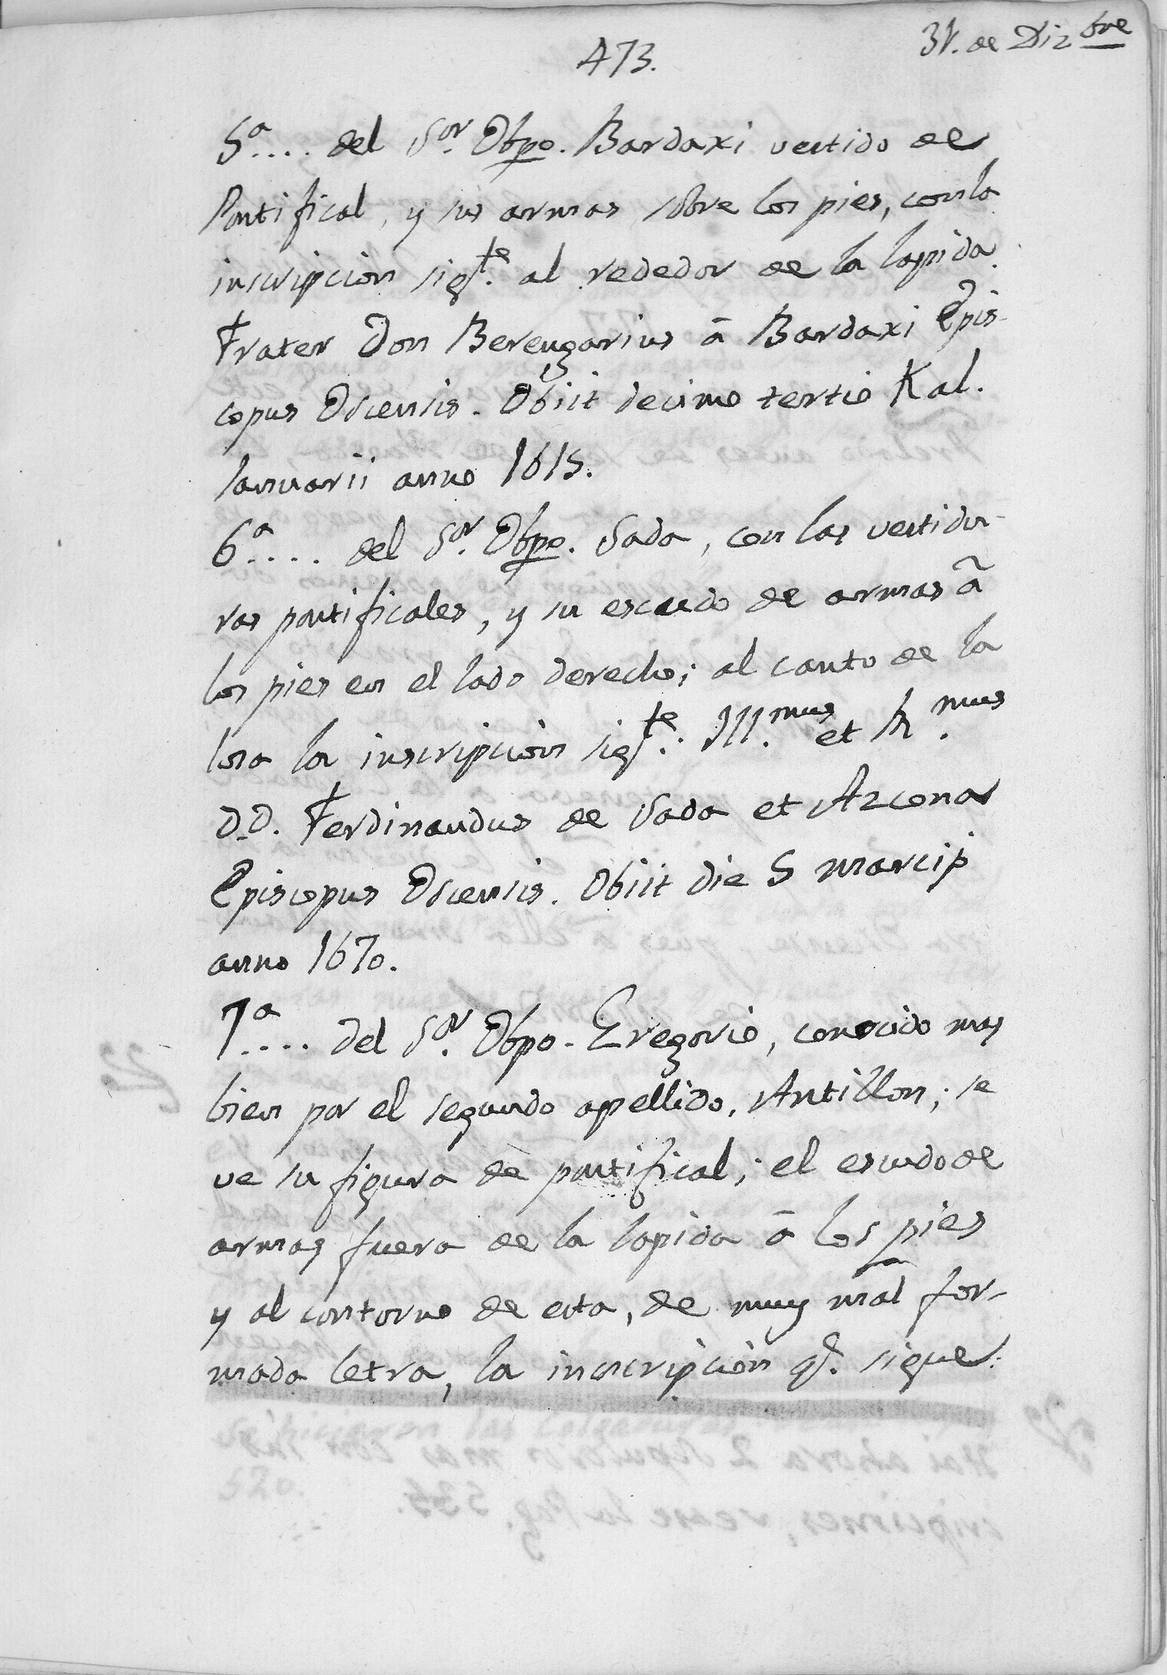 473.
31. de Diz bre
5ª.... del Sor. Obpo. Bardaxi vestido de
Pontifical, y sus armas sobre los pies, con la
inscripcion sigte. al rededor de la lapida
Frater Don Berengarius â Bardaxi Epis-
copus Oscensis. Obiit decimo tertio Kal.
Ianuarii anno 1615.
6ª.... del Sor. Obpo. Sada, con las vestidu-
ras pontificales, y su escudo de armas â
los pies en el lado derecho; al canto de la
losa la inscripcion sigte.: Ill.mus et R.mus
D.D. Ferdinandus de Sada et Azcona
Episcopus Oscensis. Obiit die 5 Marcii
anno 1670.
7ª.... del Sor. Obpo. Gregorio, conocido mas
bien por el segundo apellido, Antillon; se
ve su figura de pontifical; el escudo de
armas fuera de la lapida â los pies
y al contorno de esta, de muy mal for-
mada letra, la inscripcion q. sigue: